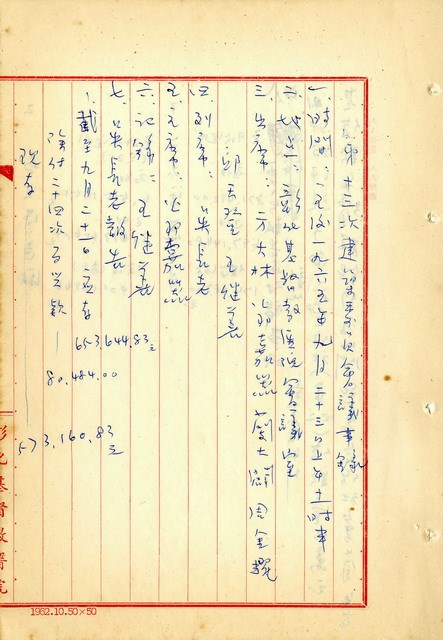 第十三次建築委員會會議事錄
一、時間：主後一九六五年九月二十三日上午十一時半
二、地點：彰化基督教醫院會議室
三、出席：方大林 邱嘉 蘭大弼 周金耀
郭天 王继義
四、列席：吳長老
五、主席：邱嘉
六、記錄：王继義
七、吳長老報告
1. 截至九月二十一日應存 653,644.83元
支付二十四次工款 — 80,484.00
現存 — 573,160.83元
彰化基督教醫院
1962.10.50×50